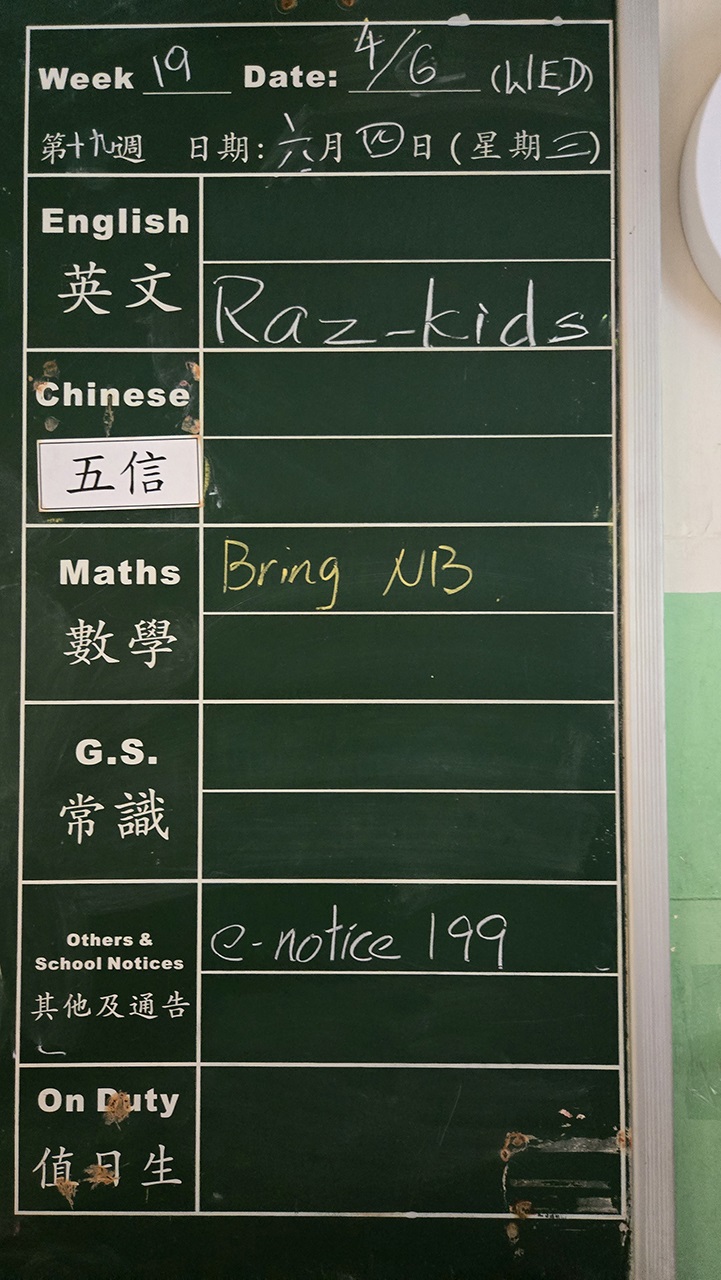 Week 19 Date: 4/6 (WED)
第十九週 日期: 六月四日 (星期三)
English
英文
Raz-kids
Chinese
五信
Maths
數學
Bring NB.
G.S.
常識
Others &
School Notices
其他及通告
e-notice 199
On Duty
值日生